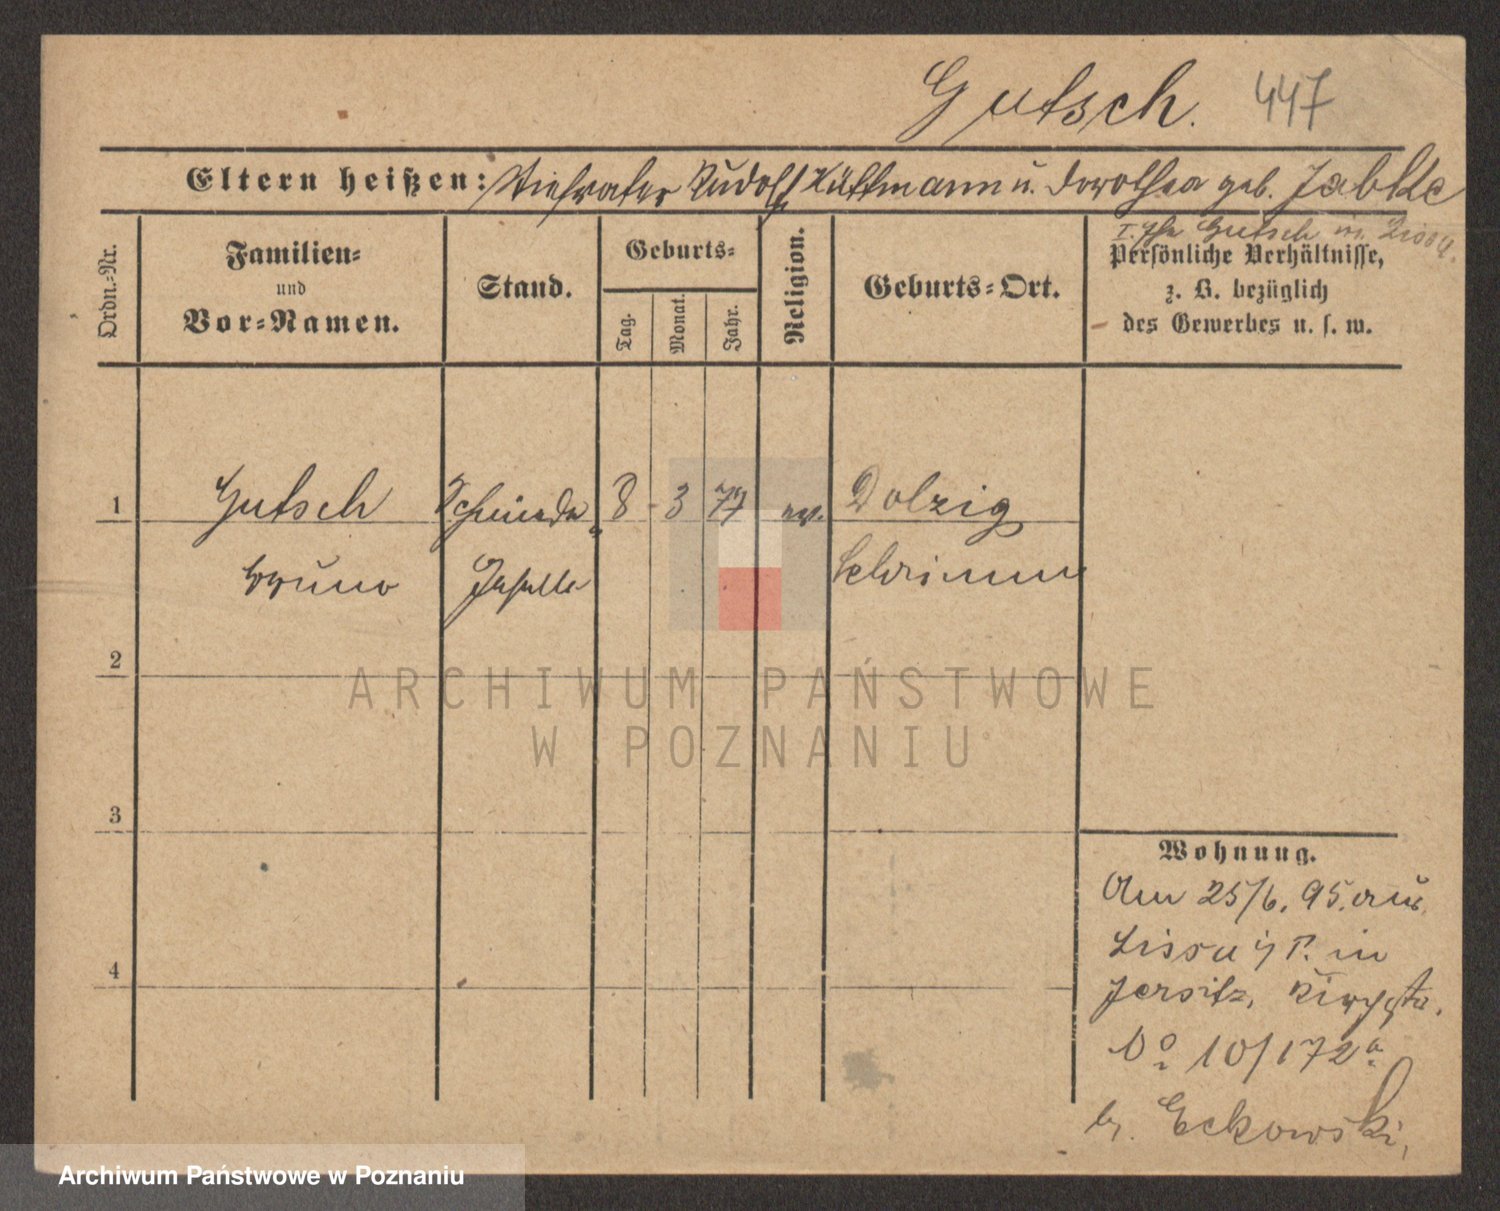 Gutsch. 447
Eltern heißen: Stiefvater Rudolf Küttmann u. Dorothea geb. Jabke
I. Gutsch in
Ordn.-Nr.
Familien-
und
Vor-Namen.
Stand.
Geburts-
Tag.
Monat.
Jahr.
Religion.
Geburts-Ort.
Persönliche Verhältnisse,
z. B. bezüglich
des Gewerbes u. s. w.
1 Gutsch Schmiede 8 3 77 ev. Dolzig
Bruno Geselle Schrimm
2
3
4
Wohnung.
Am 25/6. 95. aus
Lissa i/P. in
Jersitz,
No 10/172a
b/. Eckowski,
ARCHIWUM PAŃSTWOWE
W POZNANIU
Archiwum Państwowe w Poznaniu